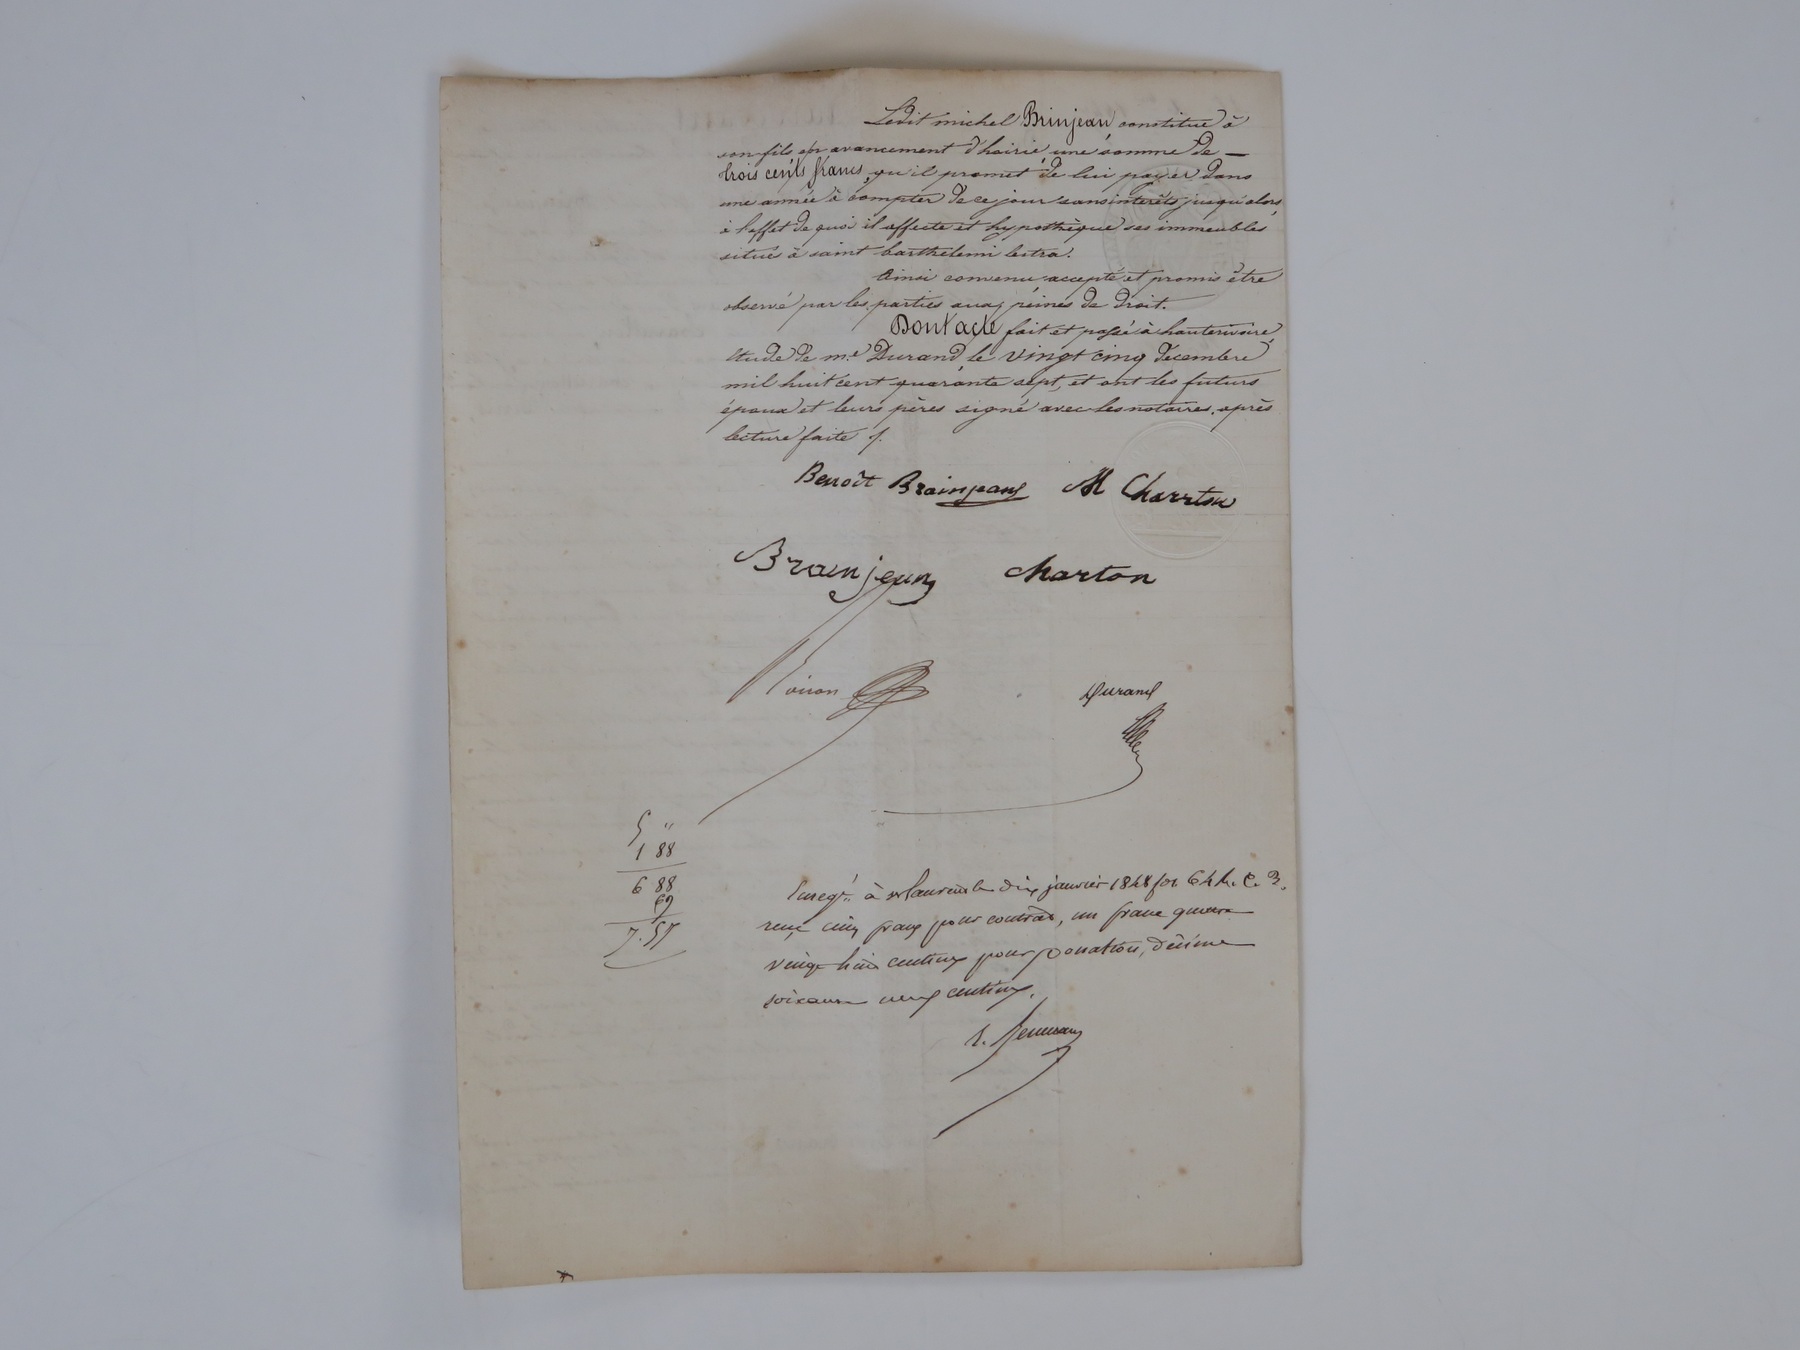 Ledit michel Brinjean constitue à
son fils en avancement d'hoirie, une somme de —
trois cents francs, qu'il promet de lui payer dans
une année à compter de ce jour sans intérêts jusqu'alors,
à l'effet de quoi il affecte et hypothèque ses immeubles
situé à saint barthélemi lestra.
Ainsi convenu accepté et promis être
observé par les parties aux peines de droit.
Dont acte fait et passé à hauterivoire,
étude de me Durand le vingt cinq décembre
mil huit cent quarante sept, et ont les futurs
époux et leurs pères signé avec les notaires, après
lecture faite /.
Benoît Brainjean M Charrton
Brainjean Charton
Durand
5 "
1 88
6 88
69
7.57
Enregt. à St Laurent le dix janvier 1848 fol 64 R. C. 3.
reçu cinq francs pour contrat, un franc quatre
vingt huit centimes pour donation, décime
soixante neuf centimes.